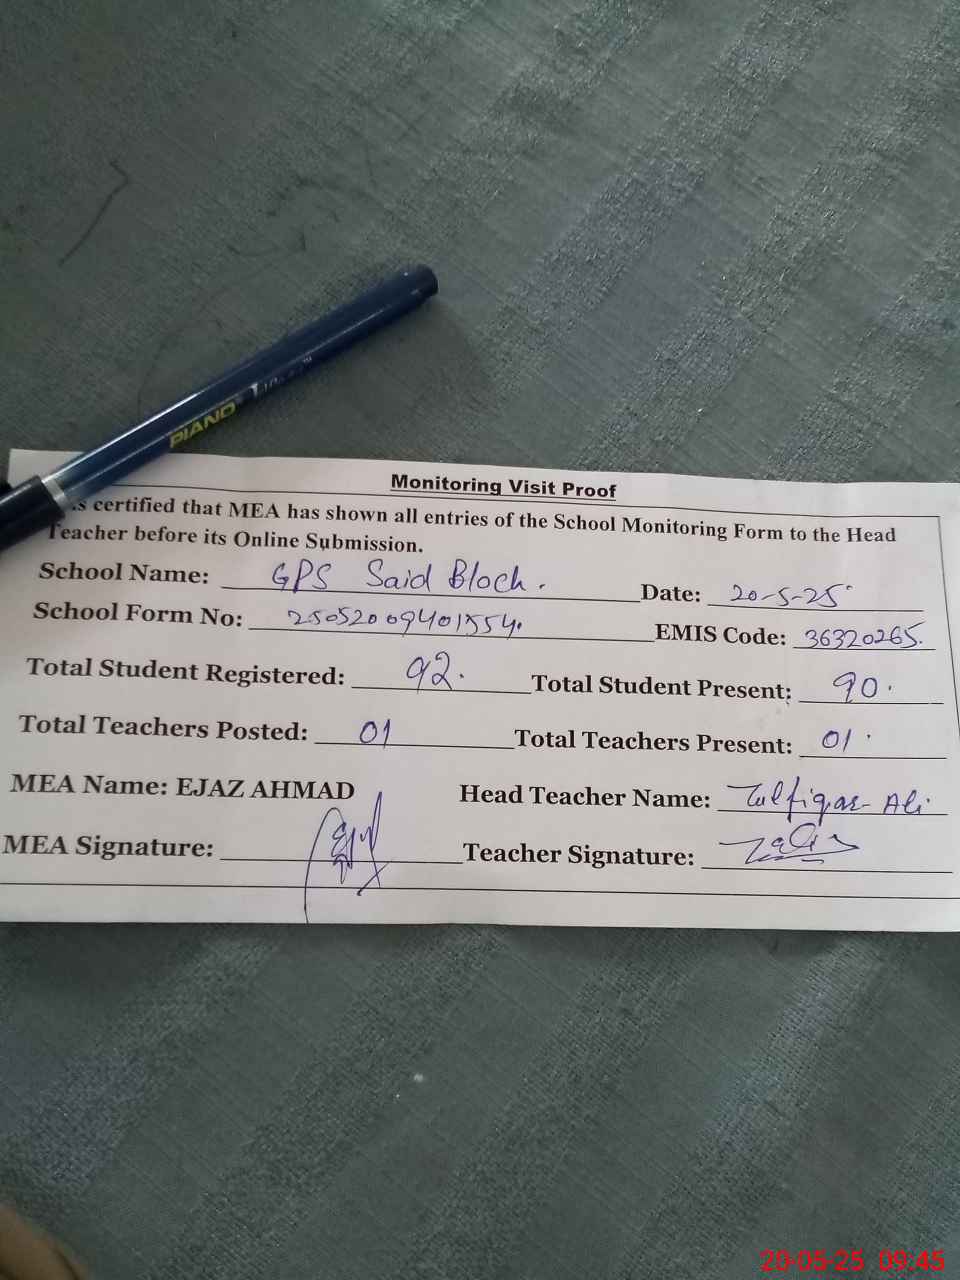 PIANO
Monitoring Visit Proof
is certified that MEA has shown all entries of the School Monitoring Form to the Head
Teacher before its Online Submission.
School Name: GPS Said Bloch. Date: 20-5-25
School Form No: 25052009401554. EMIS Code: 36320265.
Total Student Registered: 92. Total Student Present: 90.
Total Teachers Posted: 01 Total Teachers Present: 01.
MEA Name: EJAZ AHMAD Head Teacher Name: Zulfiqar Ali
MEA Signature: Teacher Signature:
20-05-25 09:45